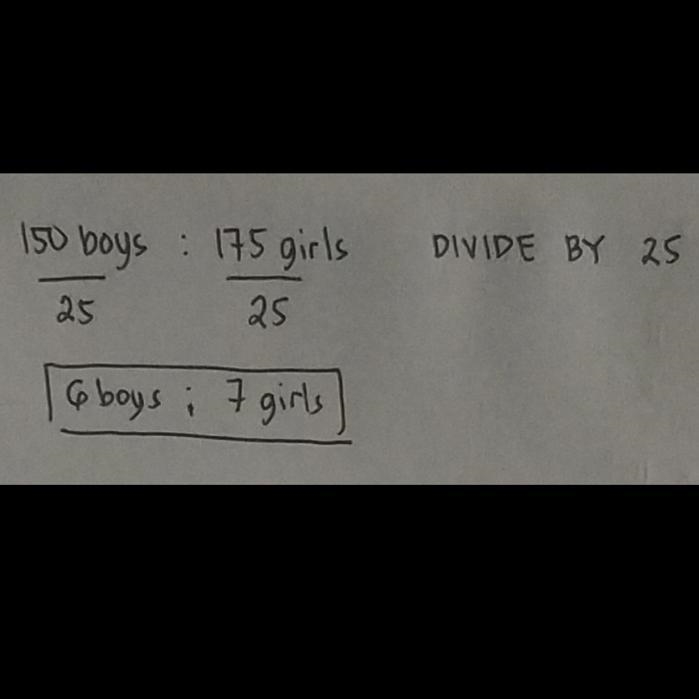 150 boys : 175 girls DIVIDE BY 25
25 25
6 boys : 7 girls